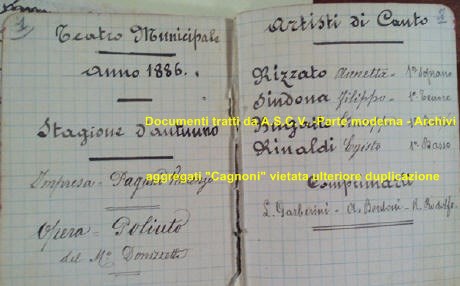 1
Teatro Municipale
Anno 1886.
Stagione d'autunno
Impresa =
Opera = Poliuto
del Mo Donizzetti
Artisti di Canto
Rizzato Annetta = 1o Soprano
Sindona Filippo = 1o Tenore
Rinaldi Egisto = 1o Basso
Comprimari
L. Garberini = A. Bordoni = R. Rodolfo
Documenti tratti da A.S.C.V. - Parte moderna - Archivi
aggregati "Cagnoni" vietata ulteriore duplicazione